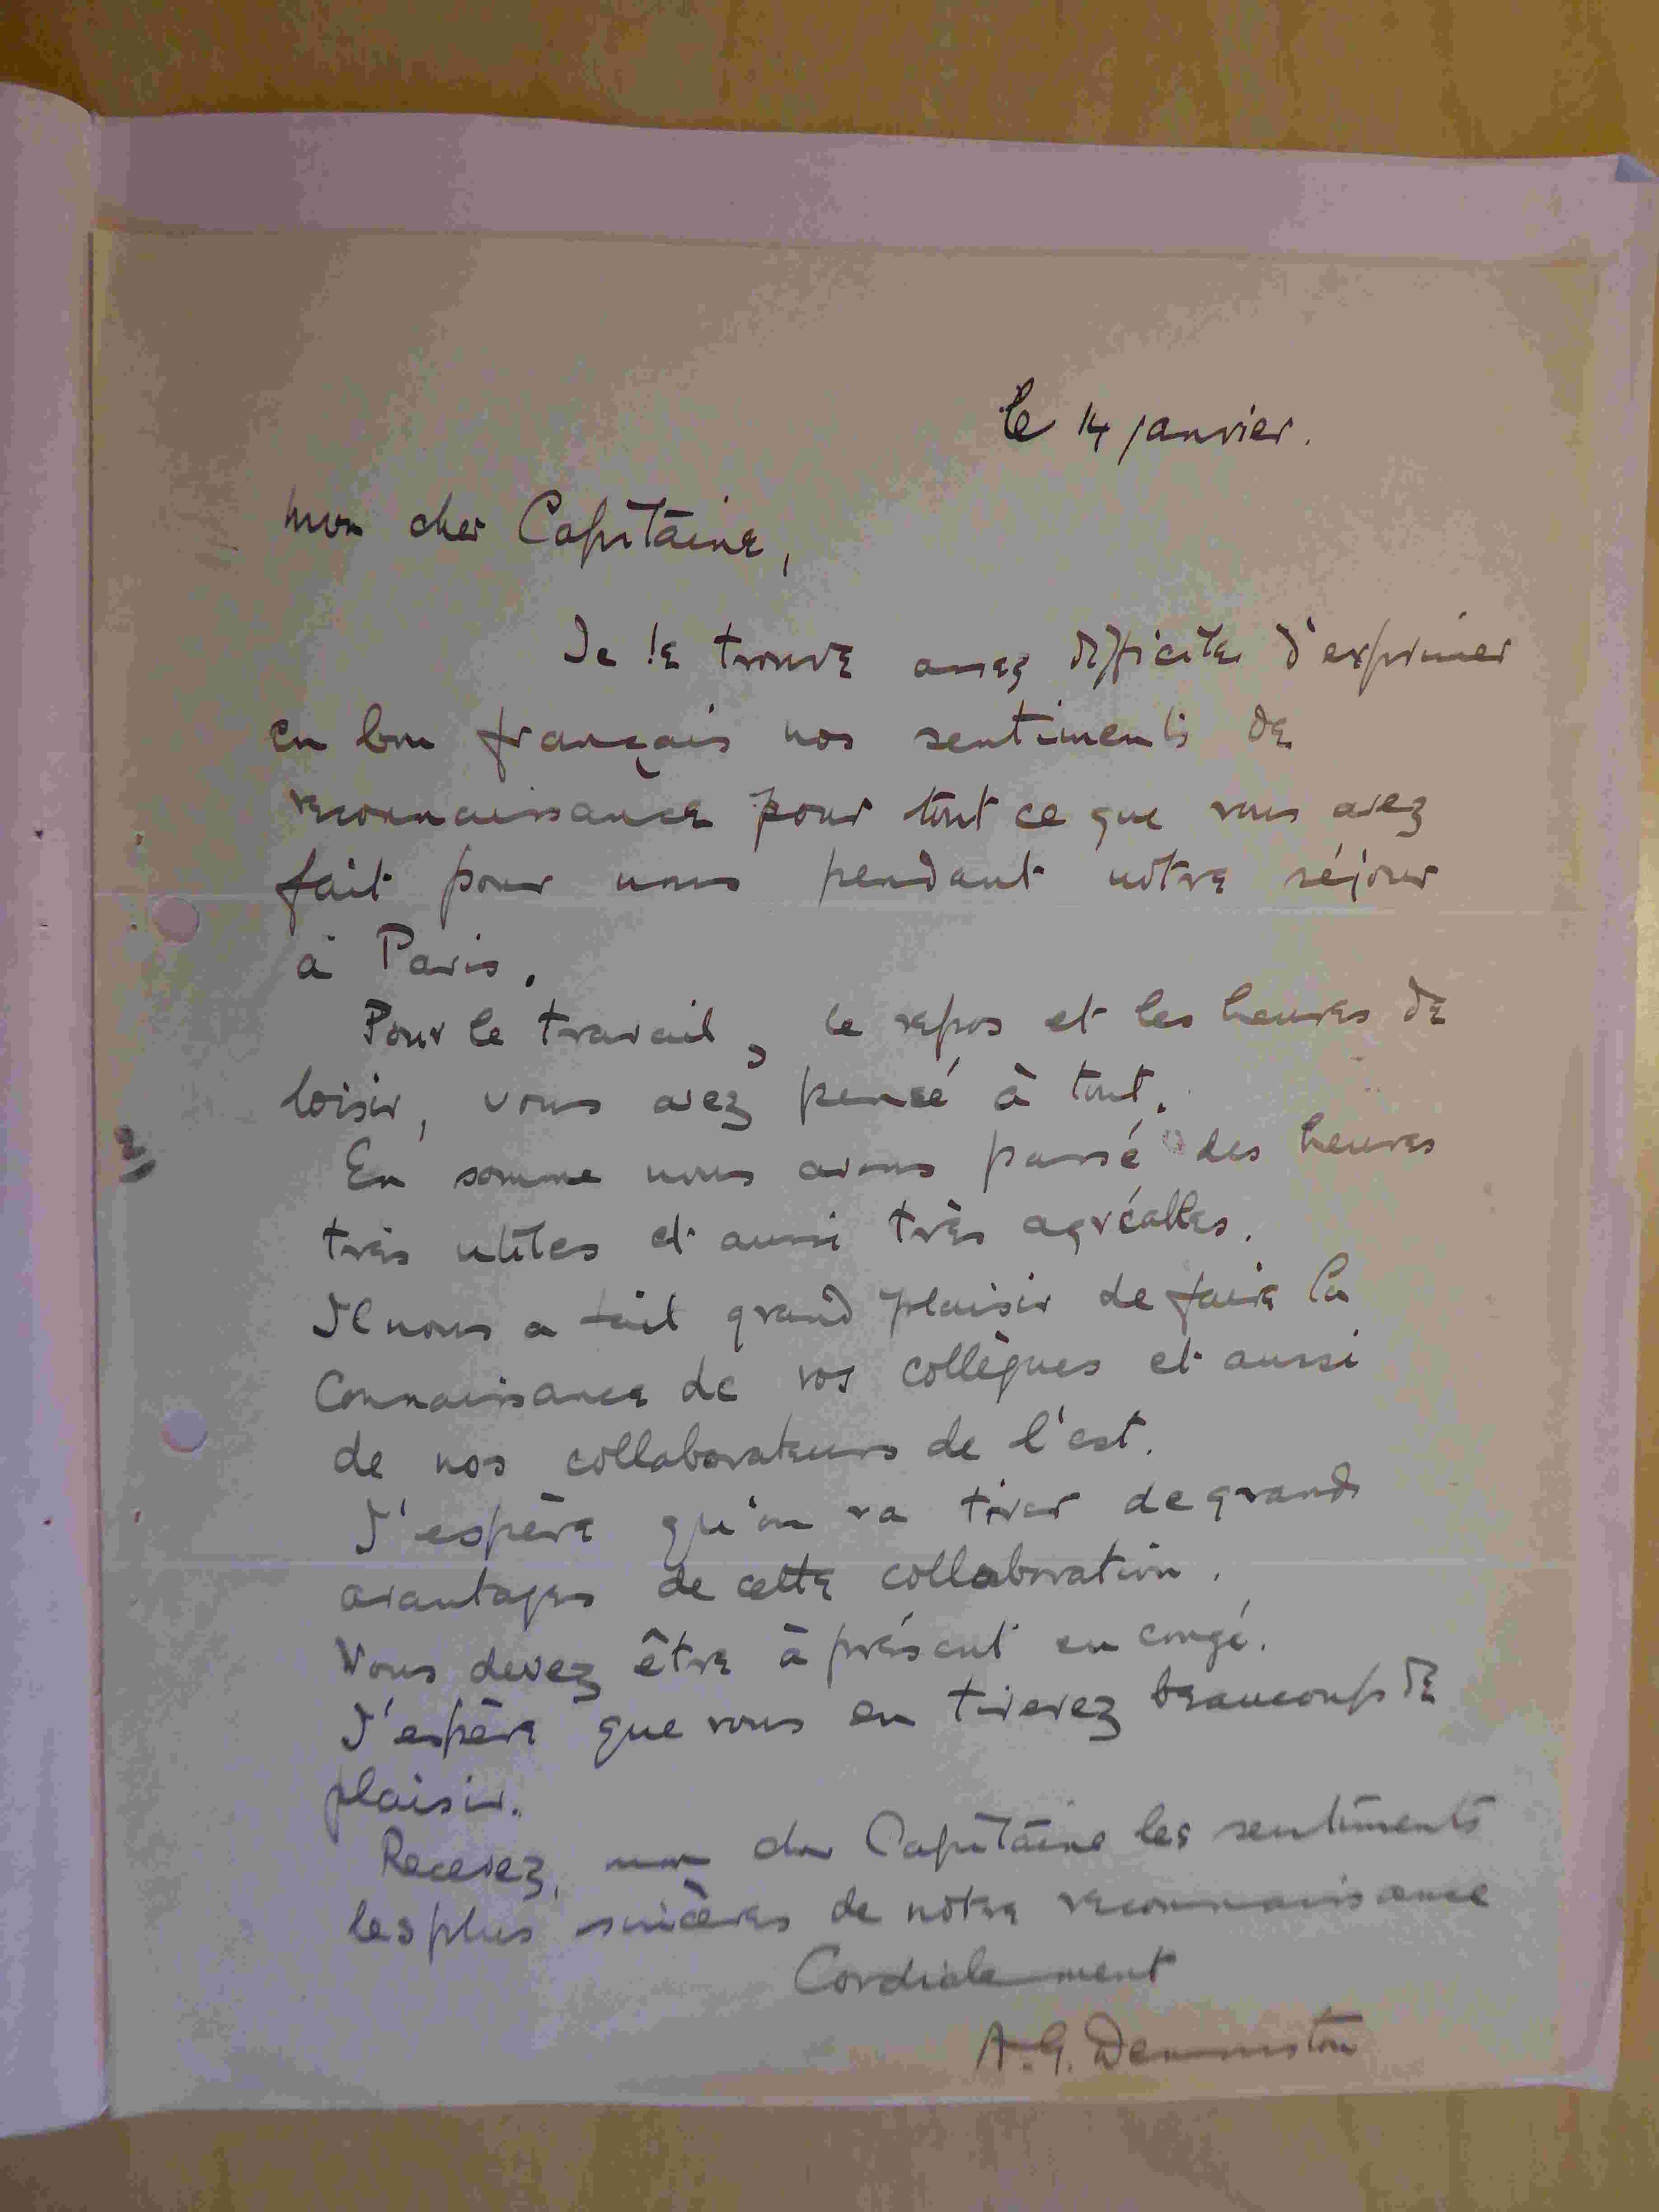 le 14 janvier.
Mon cher Capitaine,
Je le trouve assez difficile d'exprimer
en bon français nos sentiments de
reconnaissance pour tout ce que vous avez
fait pour nous pendant notre séjour
à Paris.
Pour le travail, le repos et les heures de
loisir, vous avez pensé à tout.
En somme nous avons passé des heures
très utiles et aussi très agréables.
Il nous a fait grand plaisir de faire la
connaissance de vos collègues et aussi
de nos collaborateurs de l'est.
J'espère qu'on va tirer de grands
avantages de cette collaboration.
Vous devez être à présent en congé.
J'espère que vous en tirerez beaucoup de
plaisir.
Recevez, mon cher Capitaine les sentiments
les plus sincères de notre reconnaissance
Cordialement
A.G. Denniston